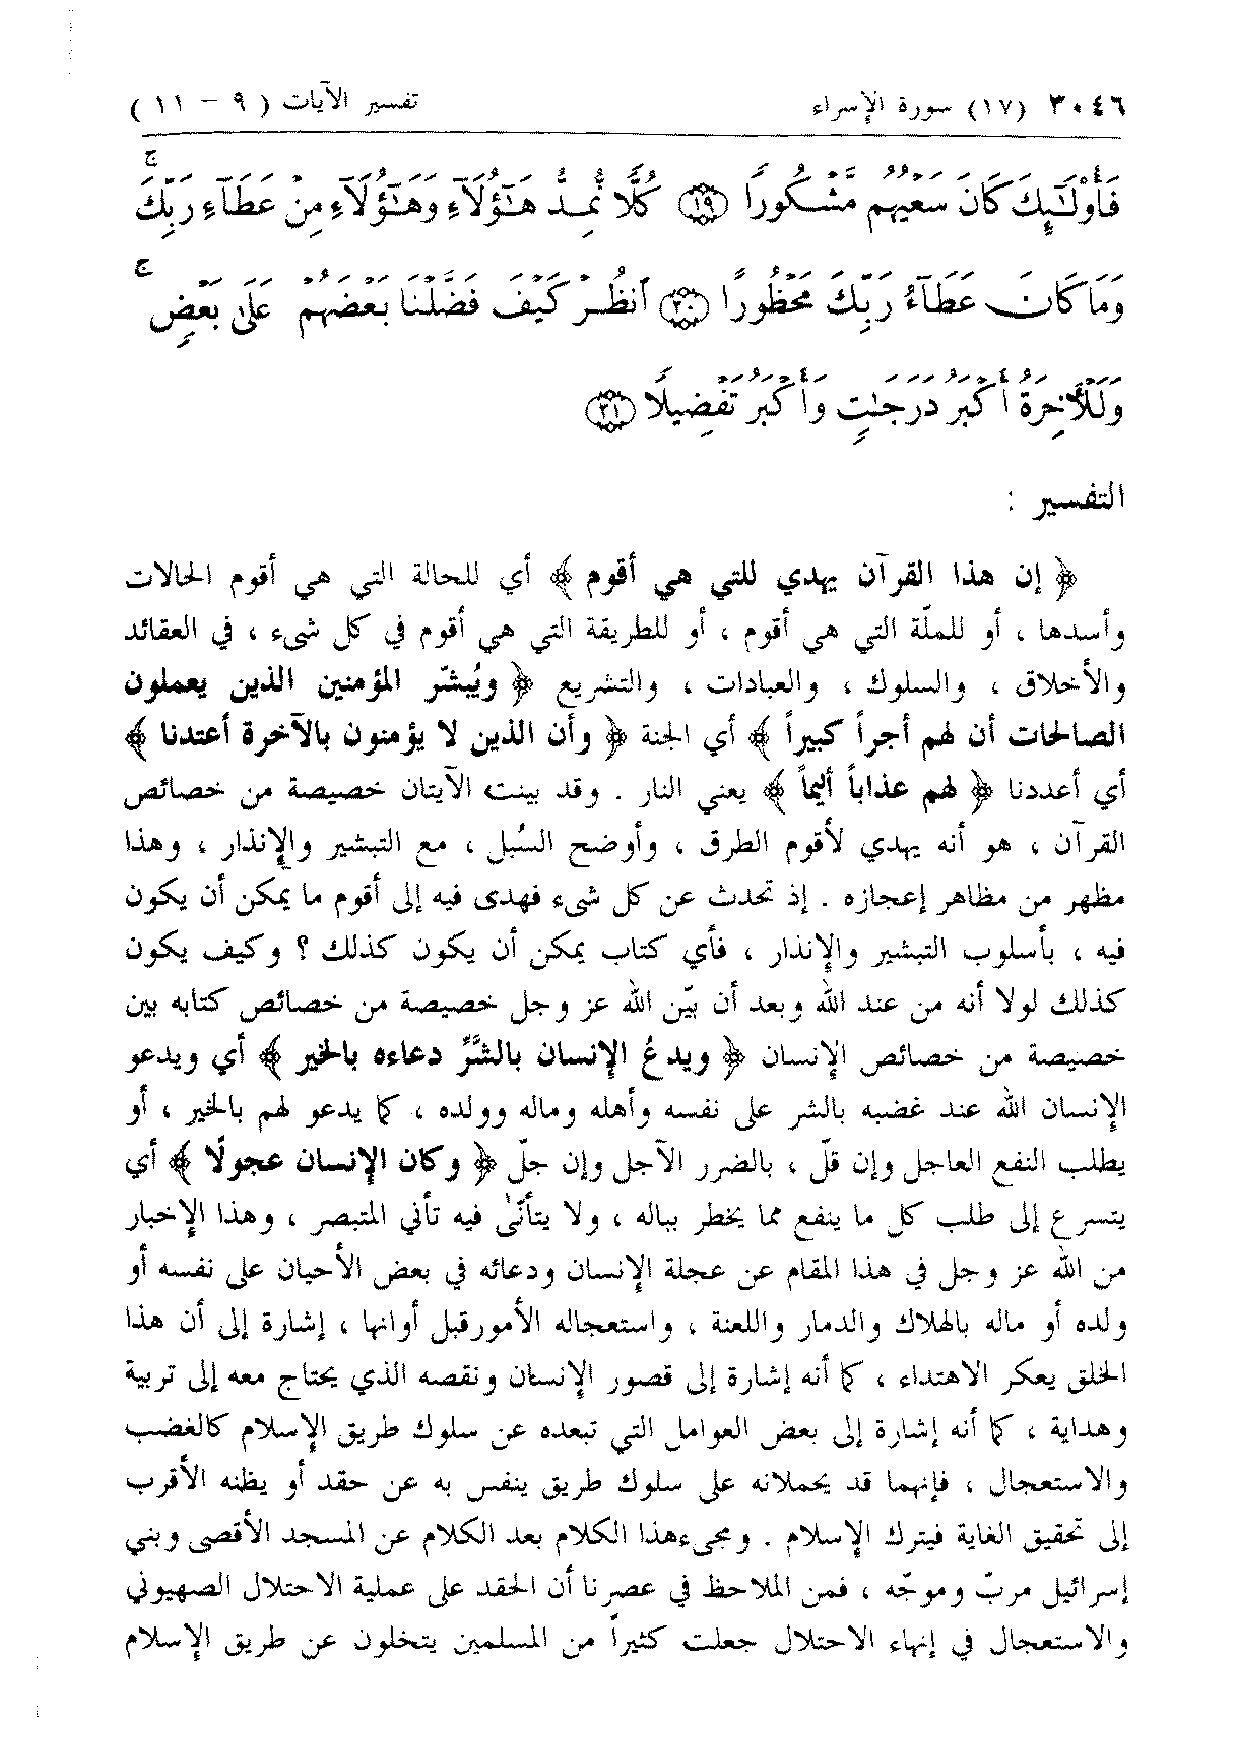 ٣٠٤٦ (١٧) سورة الإسراء تفسير الآيات ( ٩ - ١١ )
فَأُوْلَٰٓئِكَ كَانَ سَعْيُهُم مَّشْكُورًا ﴿١٩﴾ كُلًّا نُّمِدُّ هَٰٓؤُلَآءِ وَهَٰٓؤُلَآءِ مِنْ عَطَآءِ رَبِّكَ ۚ
وَمَا كَانَ عَطَآءُ رَبِّكَ مَحْظُورًا ﴿٢٠﴾ ٱنظُرْ كَيْفَ فَضَّلْنَا بَعْضَهُمْ عَلَىٰ بَعْضٍ ۚ
وَلَلْأٓخِرَةُ أَكْبَرُ دَرَجَٰتٍ وَأَكْبَرُ تَفْضِيلًا ﴿٢١﴾
التفسير :
﴿ إن هذا القرآن يهدي للتي هي أقوم ﴾ أي للحالة التي هي أقوم الحالات
وأسدها ، أو للملّة التي هي أقوم ، أو للطريقة التي هي أقوم في كل شىء ، في العقائد
والأخلاق ، والسلوك ، والعبادات ، والتشريع ﴿ ويُبشّر المؤمنين الذين يعملون
الصالحات أن لهم أجراً كبيراً ﴾ أي الجنة ﴿ وأن الذين لا يؤمنون بالآخرة أعتدنا ﴾
أي أعددنا ﴿ لهم عذاباً أليماً ﴾ يعني النار . وقد بينت الآيتان خصيصة من خصائص
القرآن ، هو أنه يهدي لأقوم الطرق ، وأوضح السُبل ، مع التبشير والإنذار ، وهذا
مظهر من مظاهر إعجازه . إذ تحدث عن كل شىء فهدى فيه إلى أقوم ما يمكن أن يكون
فيه ، بأسلوب التبشير والإنذار ، فأي كتاب يمكن أن يكون كذلك ؟ وكيف يكون
كذلك لولا أنه من عند الله وبعد أن بيّن الله عز وجل خصيصة من خصائص كتابه بين
خصيصة من خصائص الإنسان ﴿ ويدعُ الإنسان بالشَّرِّ دعاءه بالخير ﴾ أي ويدعو
الإنسان الله عند غضبه بالشر على نفسه وأهله وماله وولده ، كما يدعو لهم بالخير ، أو
يطلب النفع العاجل وإن قلّ ، بالضرر الآجل وإن جلّ ﴿ وكان الإنسان عجولًا ﴾ أي
يتسرع إلى طلب كل ما ينفع مما يخطر بباله ، ولا يتأنّى فيه تأني المتبصر ، وهذا الإخبار
من الله عز وجل في هذا المقام عن عجلة الإنسان ودعائه في بعض الأحيان على نفسه أو
ولده أو ماله بالهلاك والدمار واللعنة ، واستعجاله الأمورقبل أوانها ، إشارة إلى أن هذا
الخلق يعكر الاهتداء ، كما أنه إشارة إلى قصور الإنسان ونقصه الذي يحتاج معه إلى تربية
وهداية ، كما أنه إشارة إلى بعض العوامل التي تبعده عن سلوك طريق الإسلام كالغضب
والاستعجال ، فإنهما قد يحملانه على سلوك طريق ينفس به عن حقد أو يظنه الأقرب
إلى تحقيق الغاية فيترك الإسلام . ومجىءهذا الكلام بعد الكلام عن المسجد الأقصى وبني
إسرائيل مربّ وموجّه ، فمن الملاحظ في عصرنا أن الحقد على عملية الاحتلال الصهيوني
والاستعجال في إنهاء الاحتلال جعلت كثيراً من المسلمين يتخلون عن طريق الإسلام